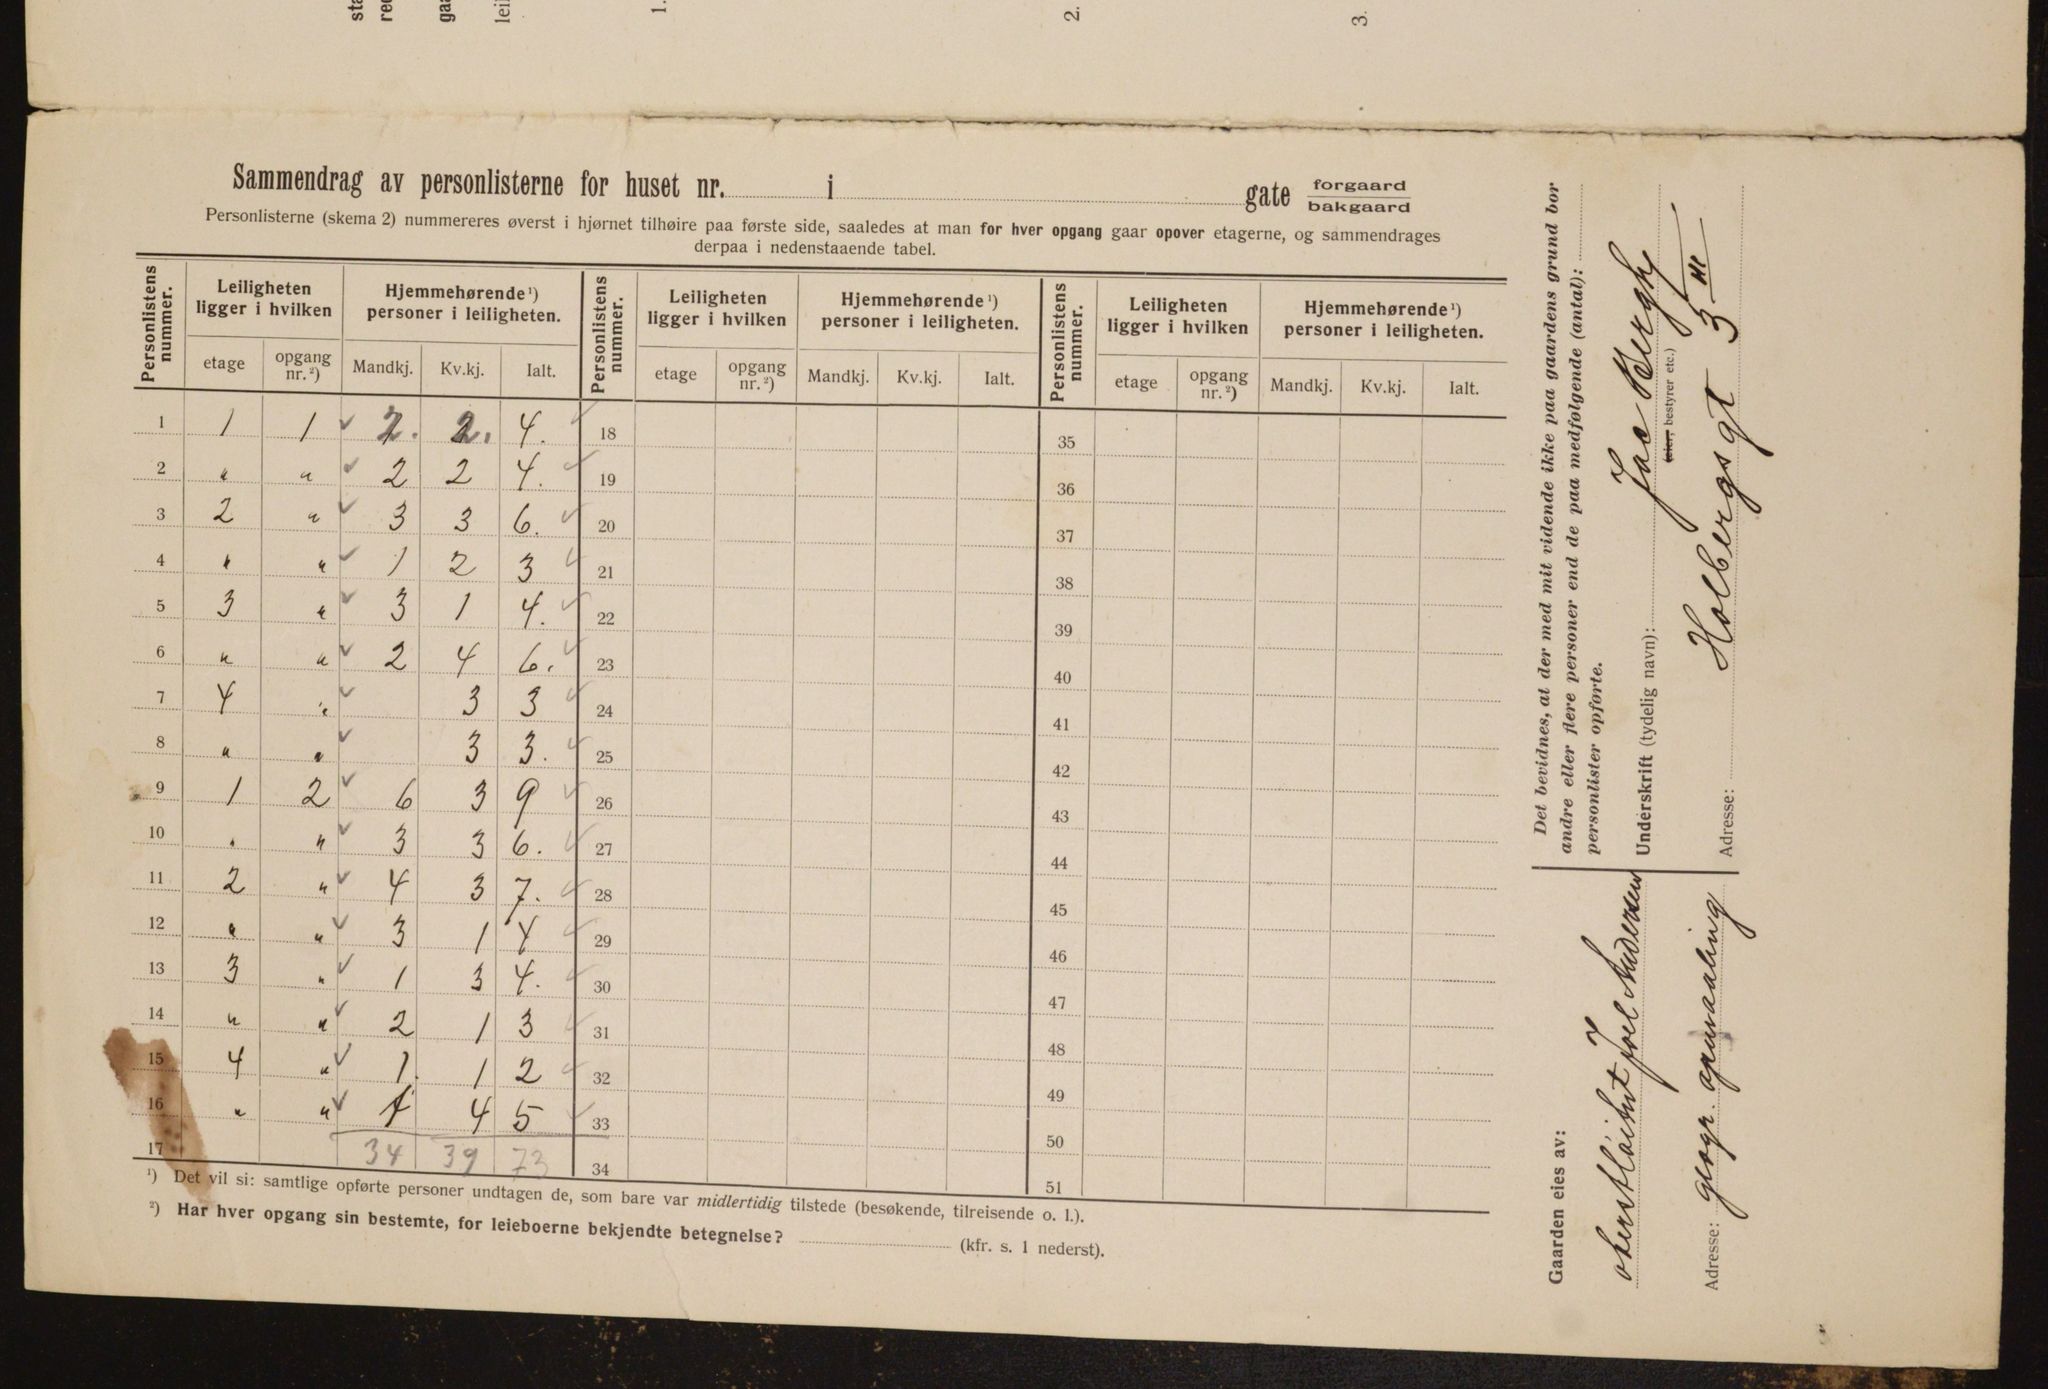 sta
red
gaa
leil
1.
2.
3.
Sammendrag av personlisterne for huset nr. i gate forgaard bakgaard
Personlisterne (skema 2) nummereres øverst i hjørnet tilhøire paa første side, saaledes at man for hver opgang gaar opover etagerne, og sammendrages
derpaa i nedenstaaende tabel.
Personlistens nummer. Leiligheten ligger i hvilken Hjemmehørende ¹) personer i leiligheten. Personlistens nummer. Leiligheten ligger i hvilken Hjemmehørende ¹) personer i leiligheten. Personlistens nummer. Leiligheten ligger i hvilken Hjemmehørende ¹) personer i leiligheten.
etage opgang nr. ²) Mandkj. Kv.kj. Ialt. etage opgang nr. ²) Mandkj. Kv.kj. Ialt. etage opgang nr. ²) Mandkj. Kv.kj. Ialt.
1 1 1 ✓ 2. 2. 4. ✓ 18 35
2 " " ✓ 2 2 4. ✓ 19 36
3 2 " ✓ 3 3 6. ✓ 20 37
4 " " ✓ 1 2 3 ✓ 21 38
5 3 " ✓ 3 1 4. ✓ 22 39
6 " " ✓ 2 4 6. ✓ 23 40
7 4 " ✓ 3 3 ✓ 24 41
8 " " ✓ 3 3. ✓ 25 42
9 1 2 ✓ 6 3 9 ✓ 26 43
10 " " ✓ 3 3 6. ✓ 27 44
11 2 " ✓ 4 3 7. ✓ 28 45
12 " " ✓ 3 1 4 ✓ 29 46
13 3 " ✓ 1 3 4. ✓ 30 47
14 " " ✓ 2 1 3 ✓ 31 48
15 4 " ✓ 1. 1 2 ✓ 32 49
16 " " ✓ 1 4 5 ✓ 33 50
17 34 39 73 34 51
¹) Det vil si: samtlige opførte personer undtagen de, som bare var midlertidig tilstede (besøkende, tilreisende o. l.).
²) Har hver opgang sin bestemte, for leieboerne bekjendte betegnelse? (kfr. s. 1 nederst).
Det bevidnes, at der med mit vidende ikke paa gaardens grund bor
andre eller flere personer end de paa medfølgende (antal):
personlister opførte.
Underskrift (tydelig navn): Jac Bergh
(eier, bestyrer etc.)
Adresse: Holbergs gt 3 III
Gaarden eies av:
oberstløitnt Joel Andersens
Adresse: geogr. opmaaling